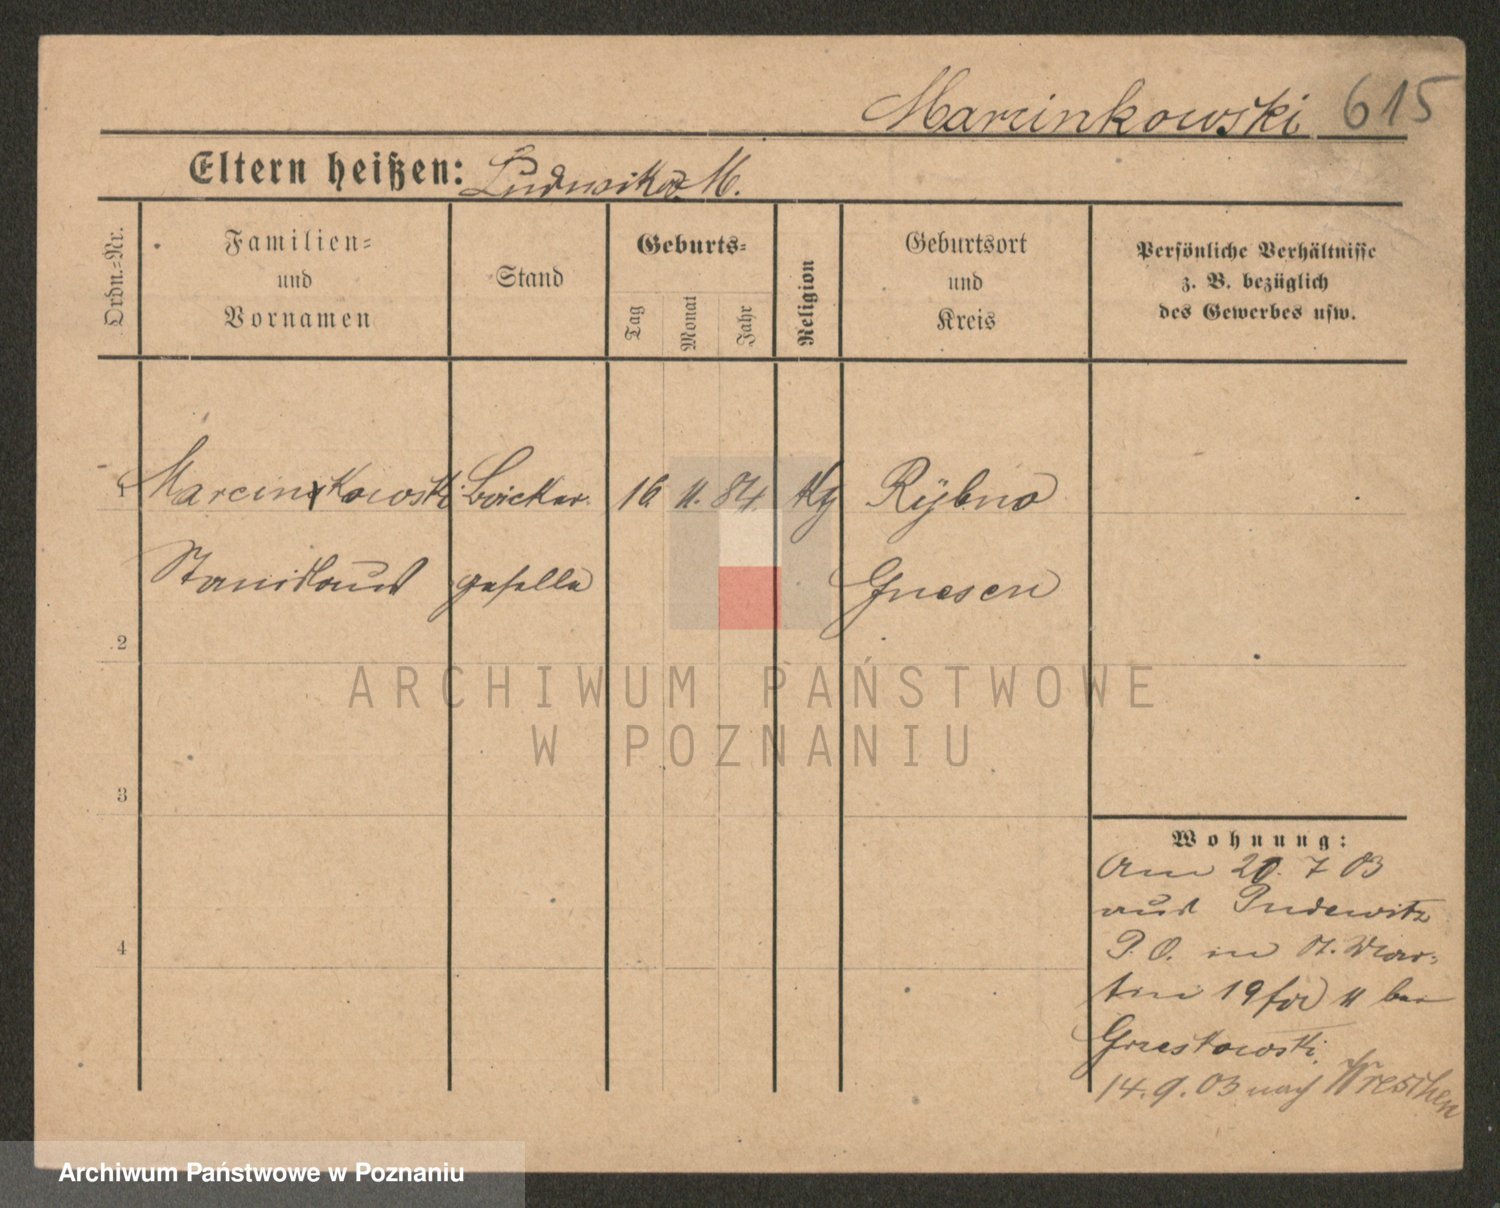 Marcinkowski 615
Eltern heißen: Ludwika M.
Ordn.-Nr.
Familien-
und
Vornamen
Stand
Geburts-
Tag
Monat
Jahr
Religion
Geburtsort
und
Kreis
Persönliche Verhältnisse
z. B. bezüglich
des Gewerbes usw.
1 Marcinkowski Bäcker 16. 11. 84. Kg Rybno
Stanislaus geselle Gnesen
2
ARCHIWUM PAŃSTWOWE
W POZNANIU
3
Wohnung:
Am 20. 7 03
aus Pudewitz
P. O. in St. Mar-
tin 19 II bei
14. 9. 03 nach Wreschen
4
Archiwum Państwowe w Poznaniu